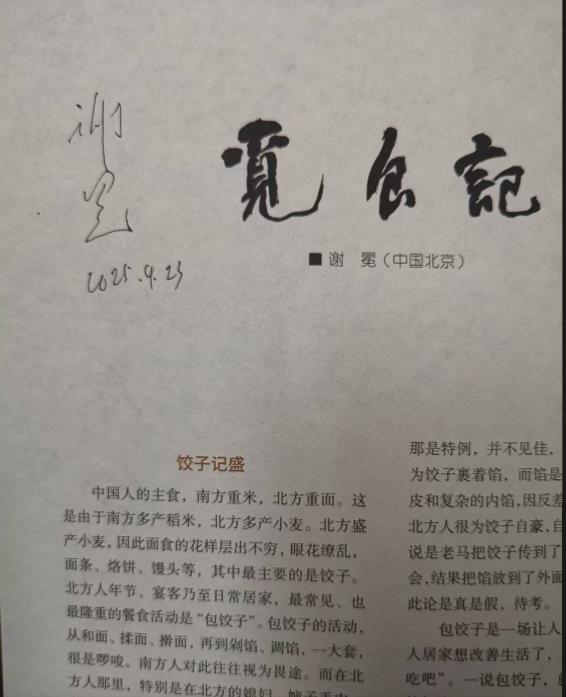 谢冕
2025.4.23
覓食記
■ 谢 冕（中国北京）
饺子记盛
中国人的主食，南方重米，北方重面。这
是由于南方多产稻米，北方多产小麦。北方盛
产小麦，因此面食的花样层出不穷，眼花缭乱，
面条、烙饼、馒头等，其中最主要的是饺子。
北方人年节、宴客乃至日常居家，最常见、也
最隆重的餐食活动是“包饺子”。包饺子的活动，
从和面、揉面、擀面，再到剁馅、调馅，一大套，
很是啰唆。南方人对此往往视为畏途。而在北
方人那里，特别是在北方的媳妇
那是特例，并不见佳，
为饺子裹着馅，而馅是
皮和复杂的内馅，因反差
北方人很为饺子自豪，自
说是老马把饺子传到了
会，结果把馅放到了外面
此论是真是假，待考。
包饺子是一场让人
人居家想改善生活了，
吃吧”。一说包饺子，